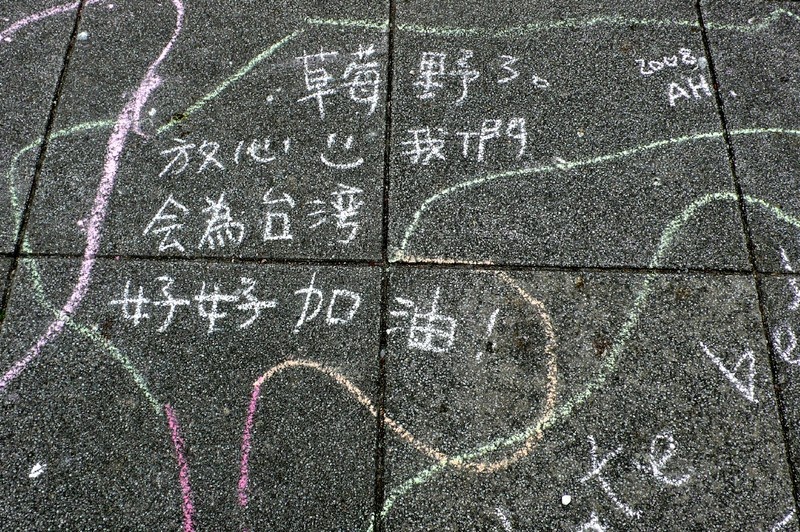 草莓野ㄋ。
2008.
AH
放心 我
会為台湾
好好加油!